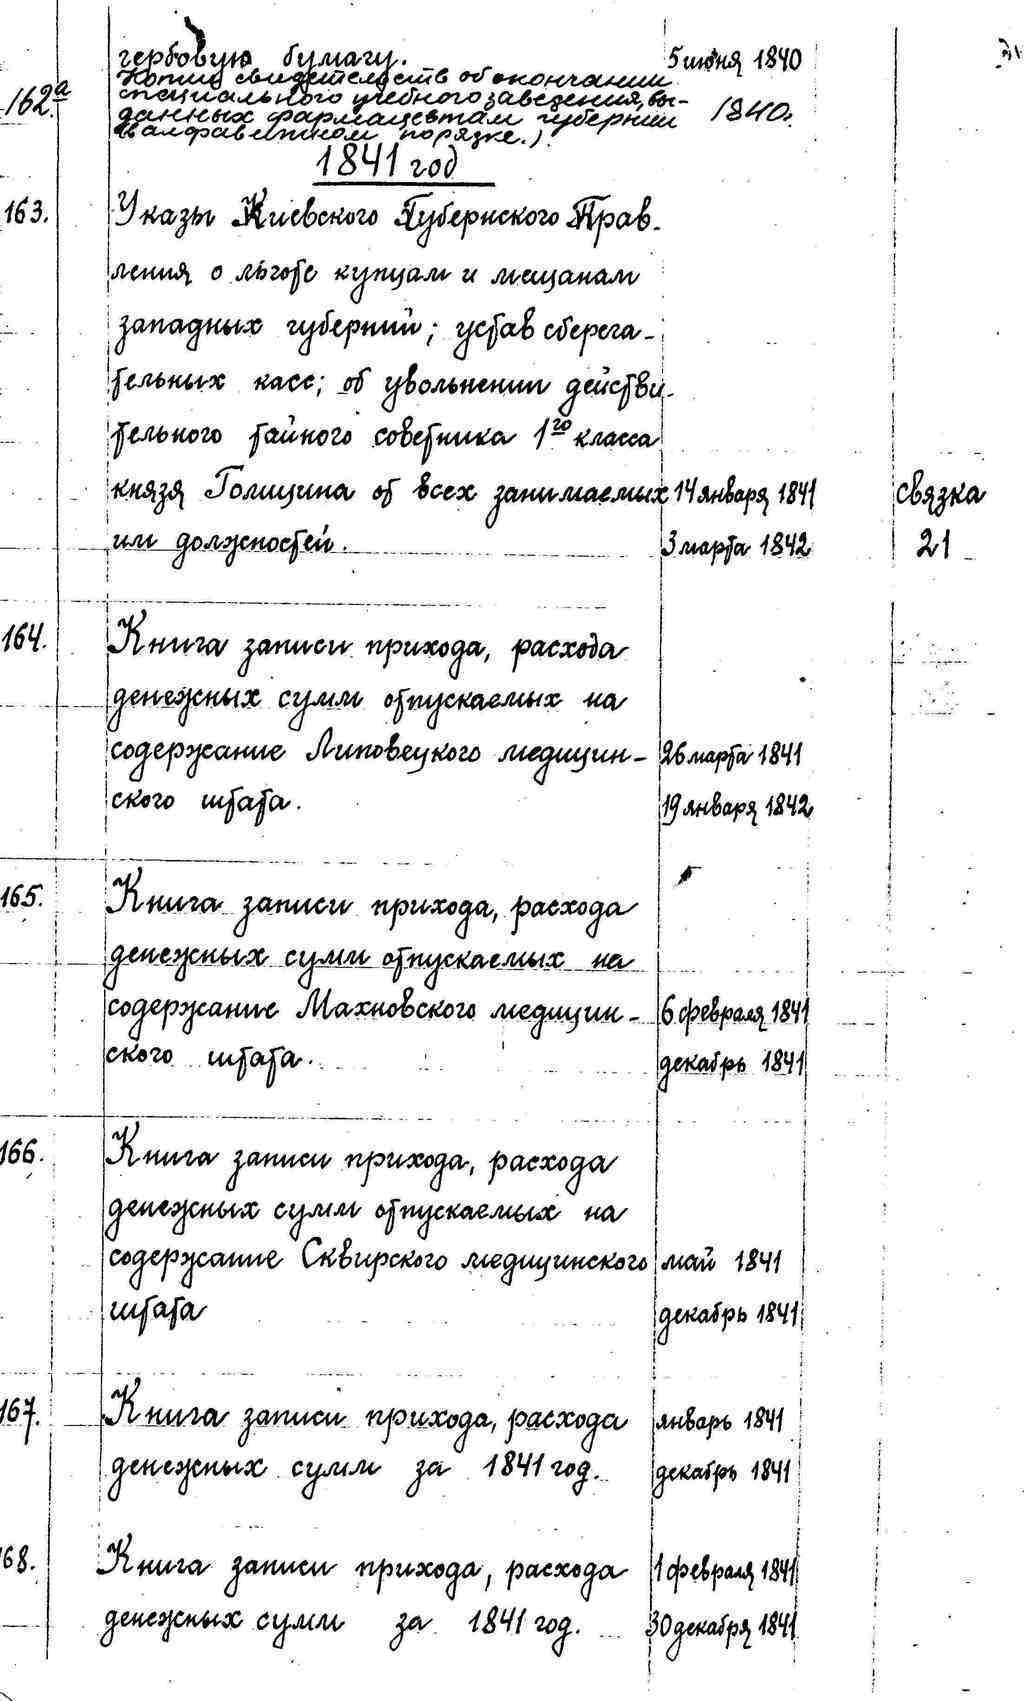 гербовую бумагу. 5 июня 1840
162.а Копии свидетельств об окончании
специального учебного заведения, вы-
данных фармацевтам губернии 1840.
(в алфавитном порядке.)
1841 год
163. Указы Киевского Губернского Прав-
ления о льготе купцам и мещанам
западных губерний; устав сберега-
тельных касс; об увольнении действи-
тельного тайного советника 1го класса
князя Голицина об всех занимаемых 14 января 1841 связка
им должностей. 3 марта 1842 21
164. Книга записи прихода, расхода
денежных сумм отпускаемых на
содержание Липовецкого медицин- 26 марта 1841
ского штата. 19 января 1842
165. Книга записи прихода, расхода
денежных сумм отпускаемых на
содержание Махновского медицин- 6 февраля 1841
ского штата. декабрь 1841
166. Книга записи прихода, расхода
денежных сумм отпускаемых на
содержание Сквирского медицинского май 1841
штата декабрь 1841
167. Книга записи прихода, расхода январь 1841
денежных сумм за 1841 год. декабрь 1841
68. Книга записи прихода, расхода 1 февраля 1841
денежных сумм за 1841 год. 30 декабря 1841